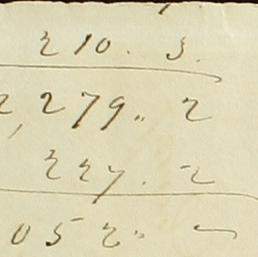 210. 3.
2,279.. 2
227. 2
052.. ~